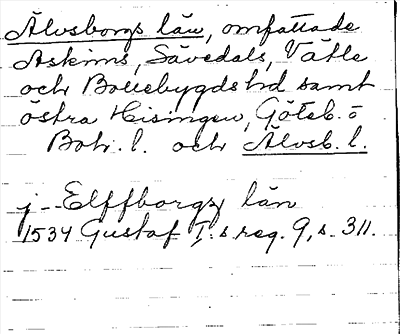 Älvsborgs län, omfattade
Askims, Sävedals, Vätle
och Bollebygds hd samt
östra Hisingen, Göteb. o
Boh. l. och Älvsb. l.
j--Elffborgz län
1534 Gustaf I:s reg. 9, s. 311.